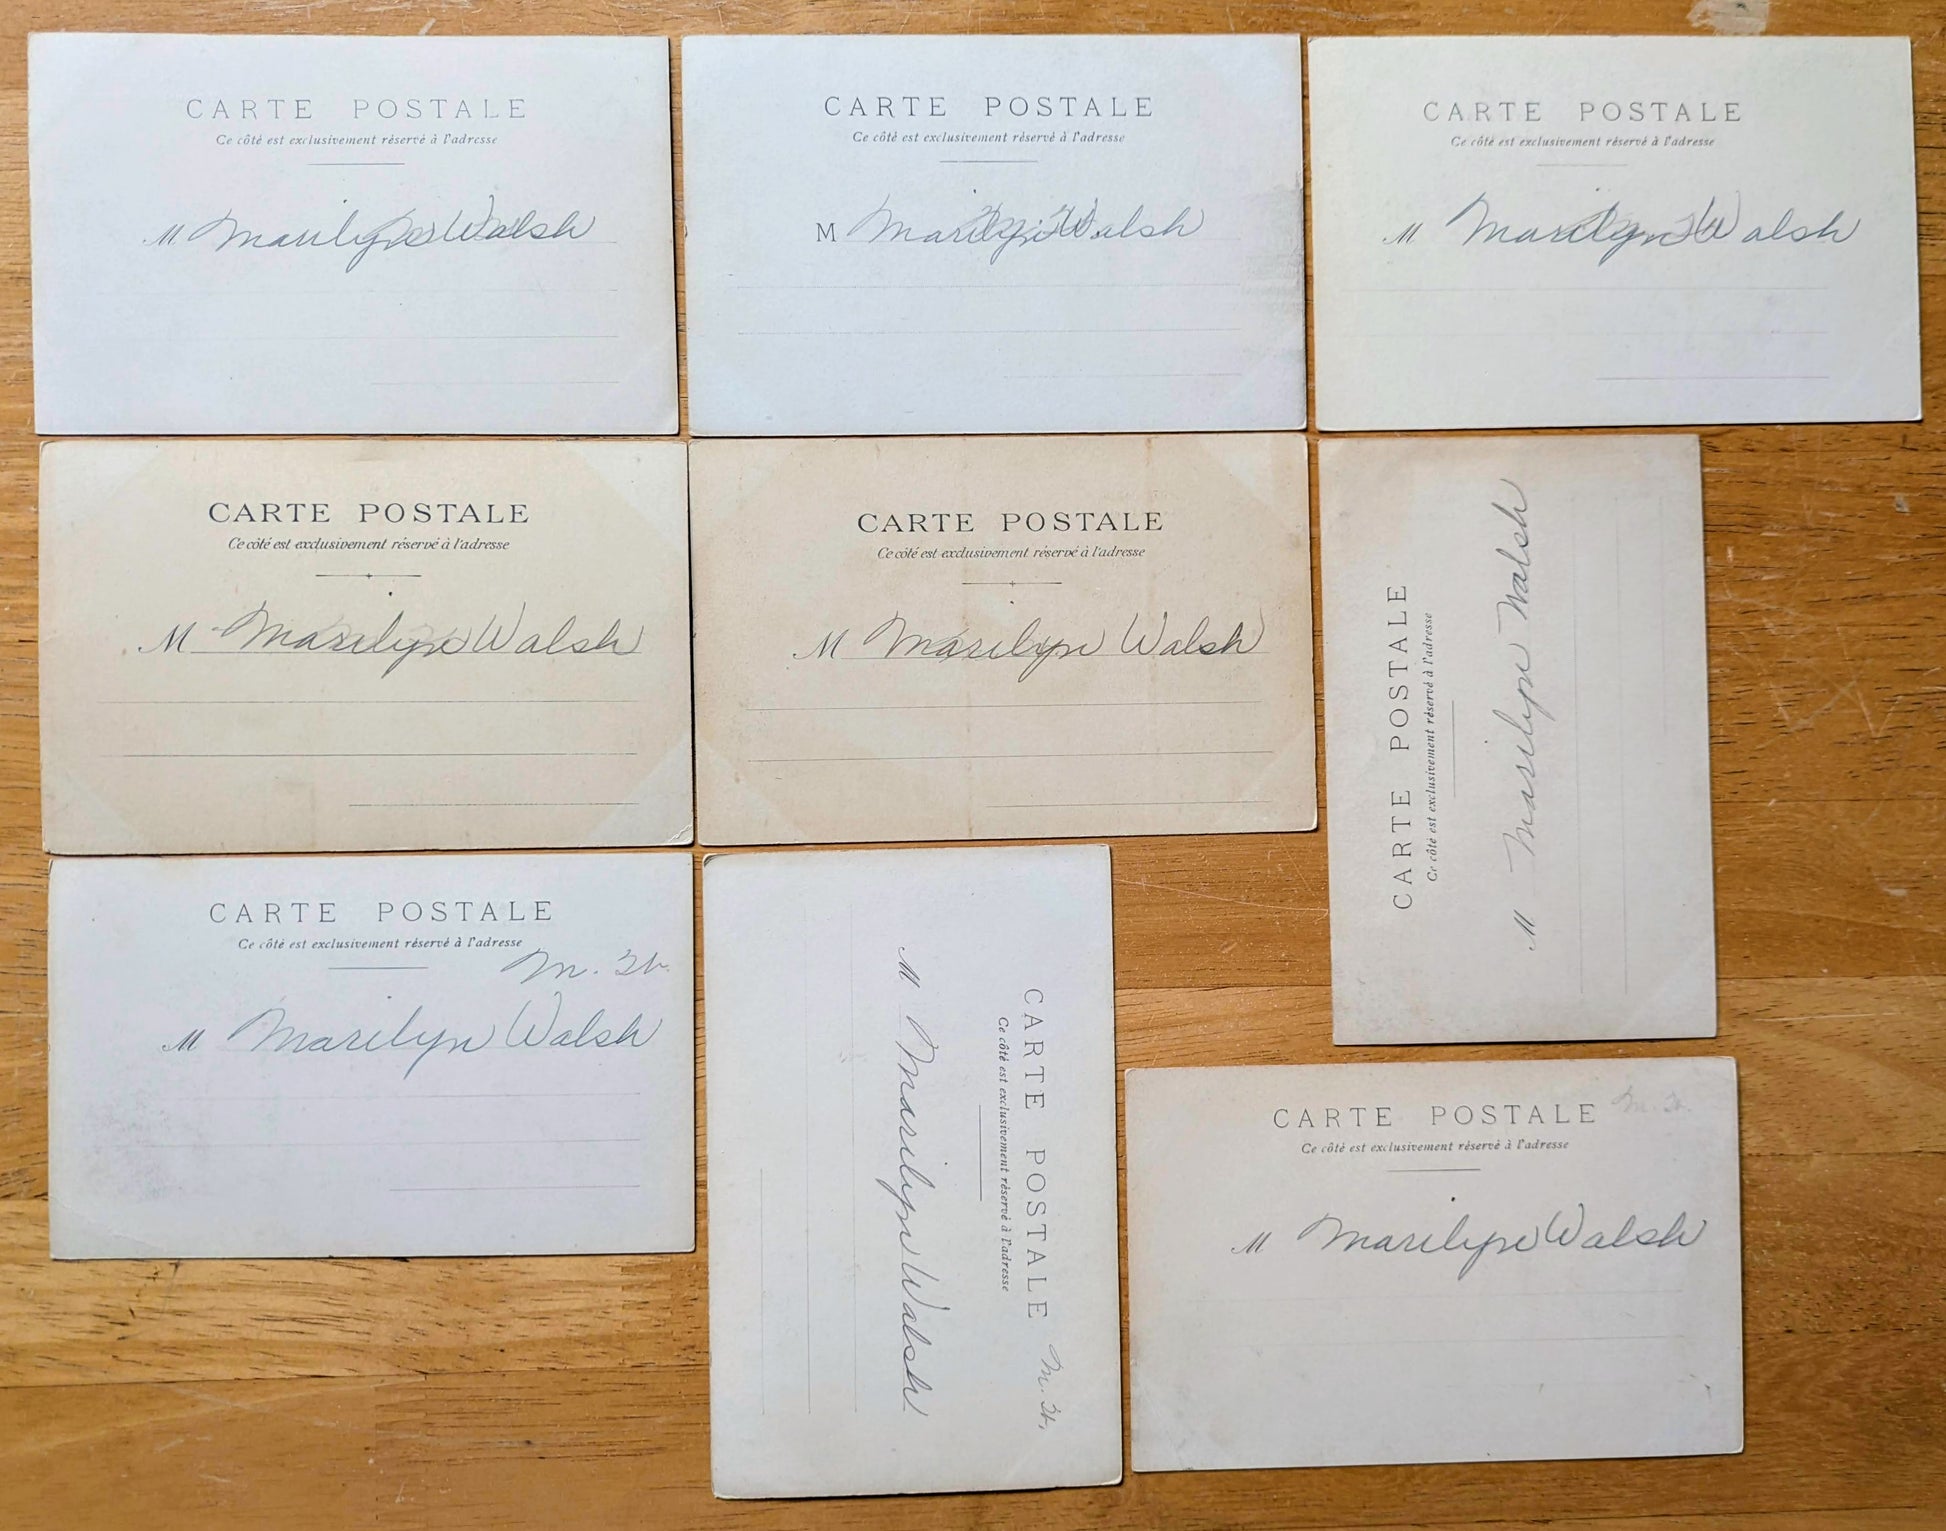 CARTE POSTALE
Ce côté est exclusivement réservé à l'adresse
M Marilyn Walsh
CARTE POSTALE
Ce côté est exclusivement réservé à l'adresse
M Marilyn Walsh
CARTE POSTALE
Ce côté est exclusivement réservé à l'adresse
M Marilyn Walsh
CARTE POSTALE
Ce côté est exclusivement réservé à l'adresse
M Marilyn Walsh
CARTE POSTALE
Ce côté est exclusivement réservé à l'adresse
M Marilyn Walsh
CARTE POSTALE
Ce côté est exclusivement réservé à l'adresse
M Marilyn Walsh
CARTE POSTALE
Ce côté est exclusivement réservé à l'adresse
M Marilyn Walsh
CARTE POSTALE
Ce côté est exclusivement réservé à l'adresse
M Marilyn Walsh
CARTE POSTALE
Ce côté est exclusivement réservé à l'adresse
M Marilyn Walsh